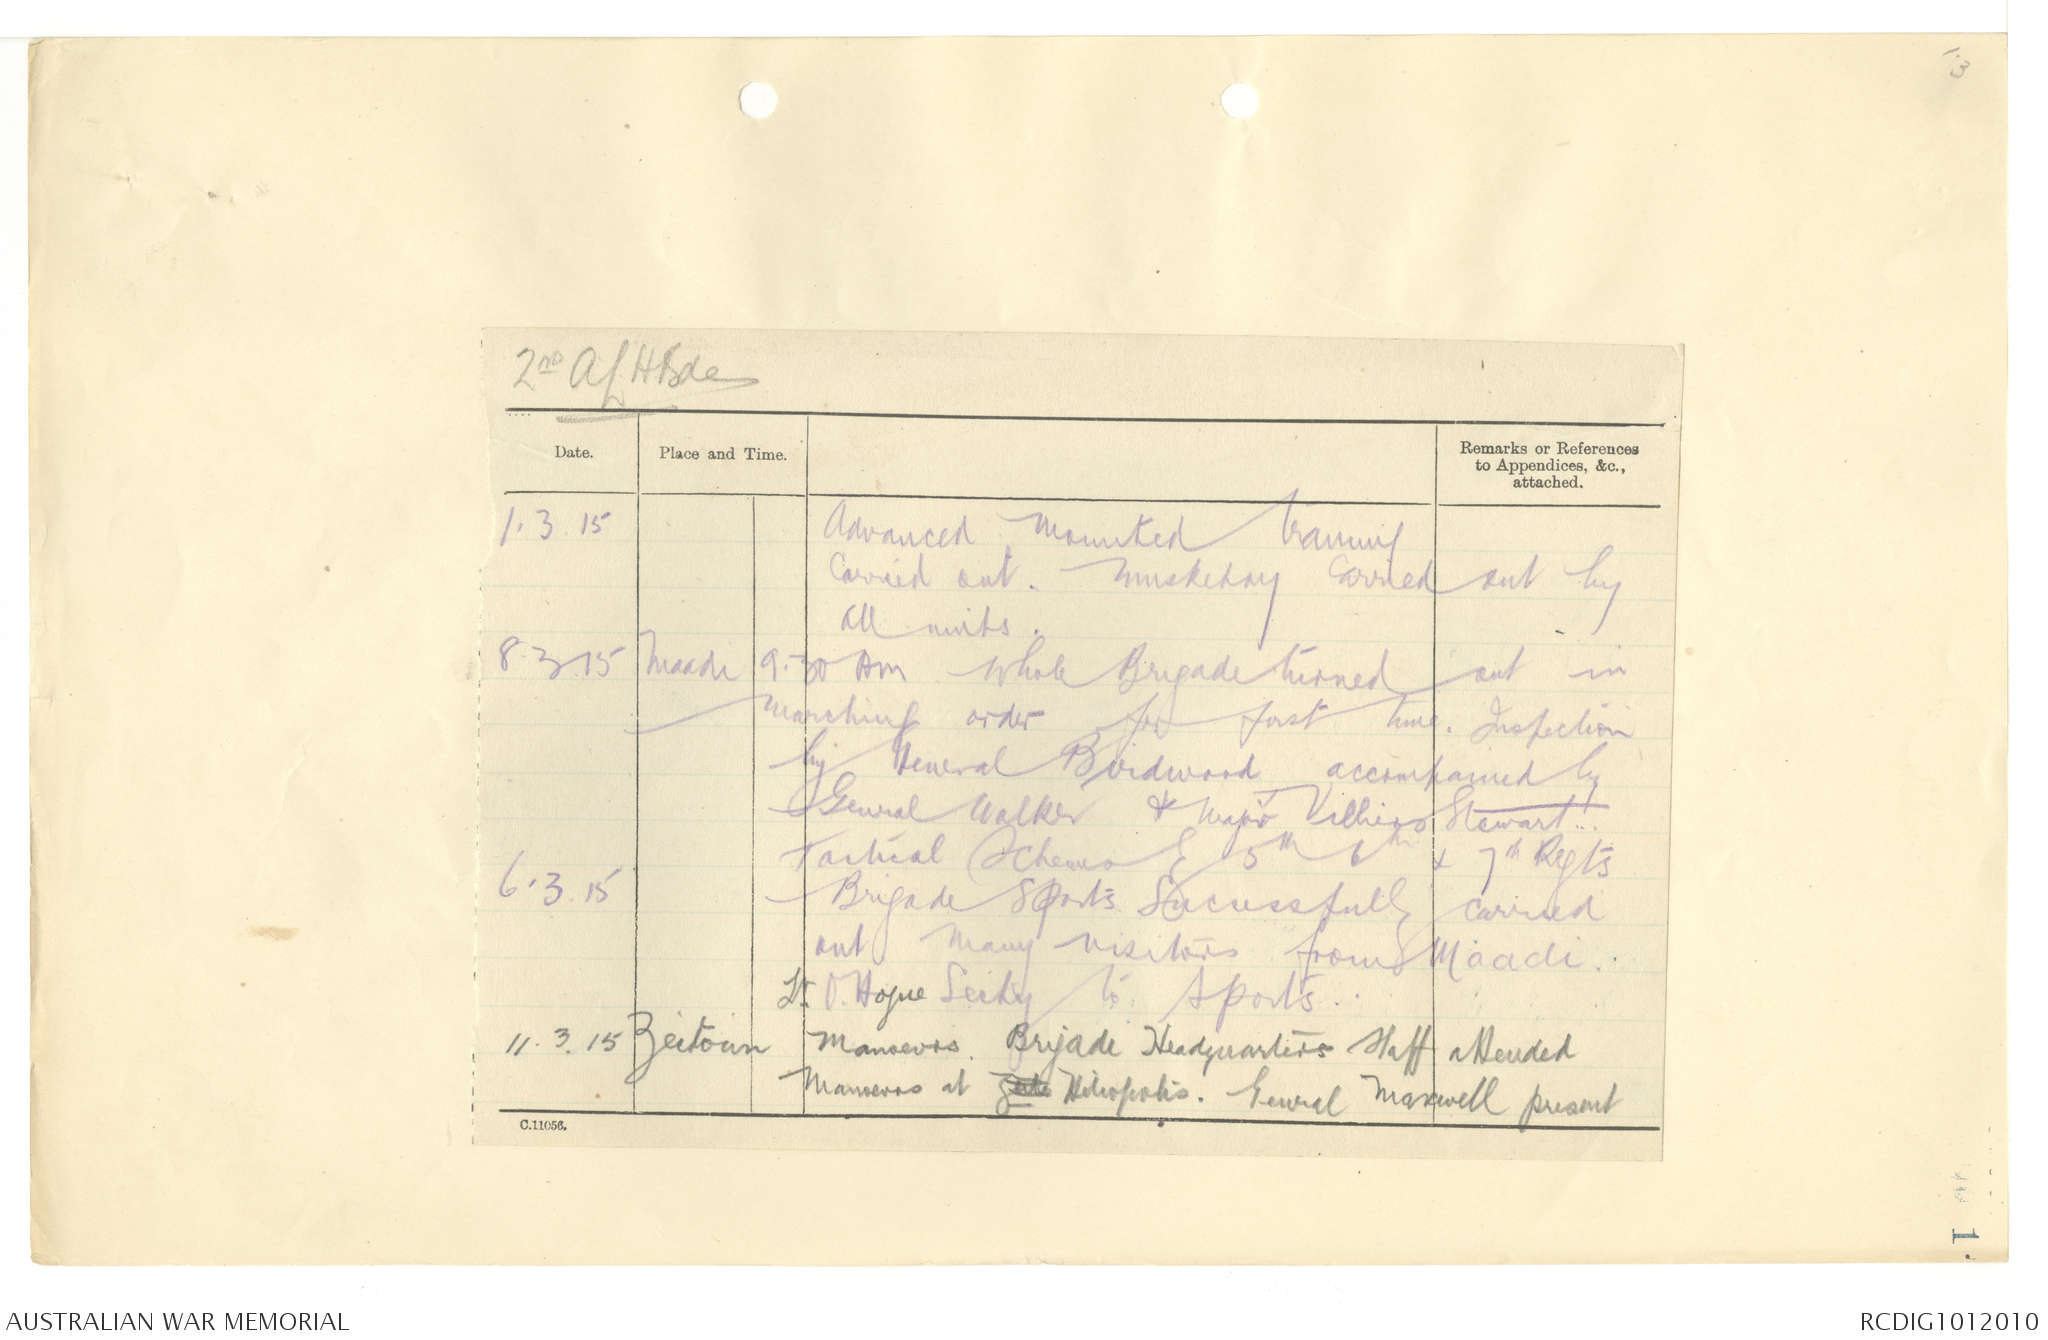 13
2nd A L H Bde
Date.
Place and Time.
Remarks or References
to Appendices, &c.,
attached.
1.3.15 Advanced Mounted training
Carried out. Musketry Carried out by
all units.
8.3.15 Maadi 9.30 Am Whole Brigade turned out in
marching order for first time. Inspection
by General Birdwood accompanied by
General Walker & Major Villiers Stewart.
Tactical Scheme 5th 6th & 7th Regts
6.3.15 Brigade Sports Successfully carried
out Many visitors from Maadi.
Lt. O. Hogue Secty to Sports.
11.3.15 Zeitoun Manoevrs. Brigade Headquarters Staff attended
Manoevrs at Heliopolis. General Maxwell present
C.11056.
1
AUSTRALIAN WAR MEMORIAL
RCDIG1012010